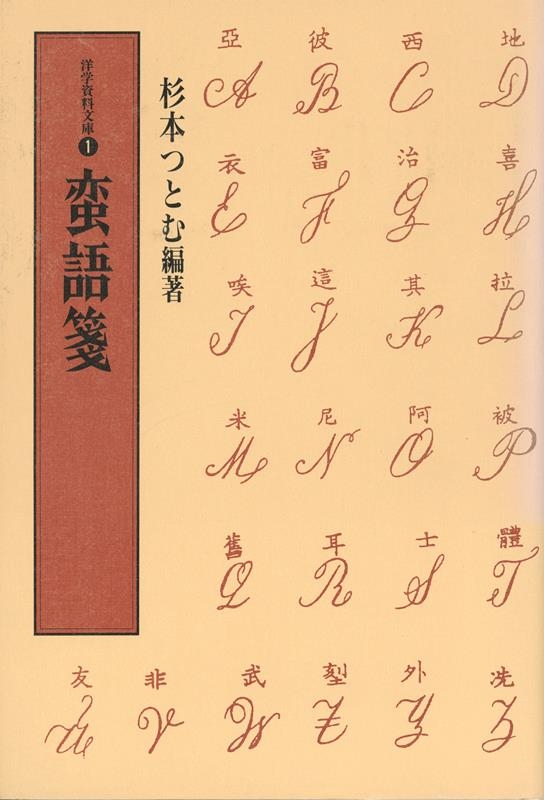 洋学資料文庫❶
蛮語箋
杉本つとむ編著
亞 彼 西 地
A B C D
衣 富 治 喜
E F G H
唉 這 其 拉
I J K L
米 尼 阿 被
M N O P
舊 耳 士 體
Q R S T
友 非 武 外
V W Z